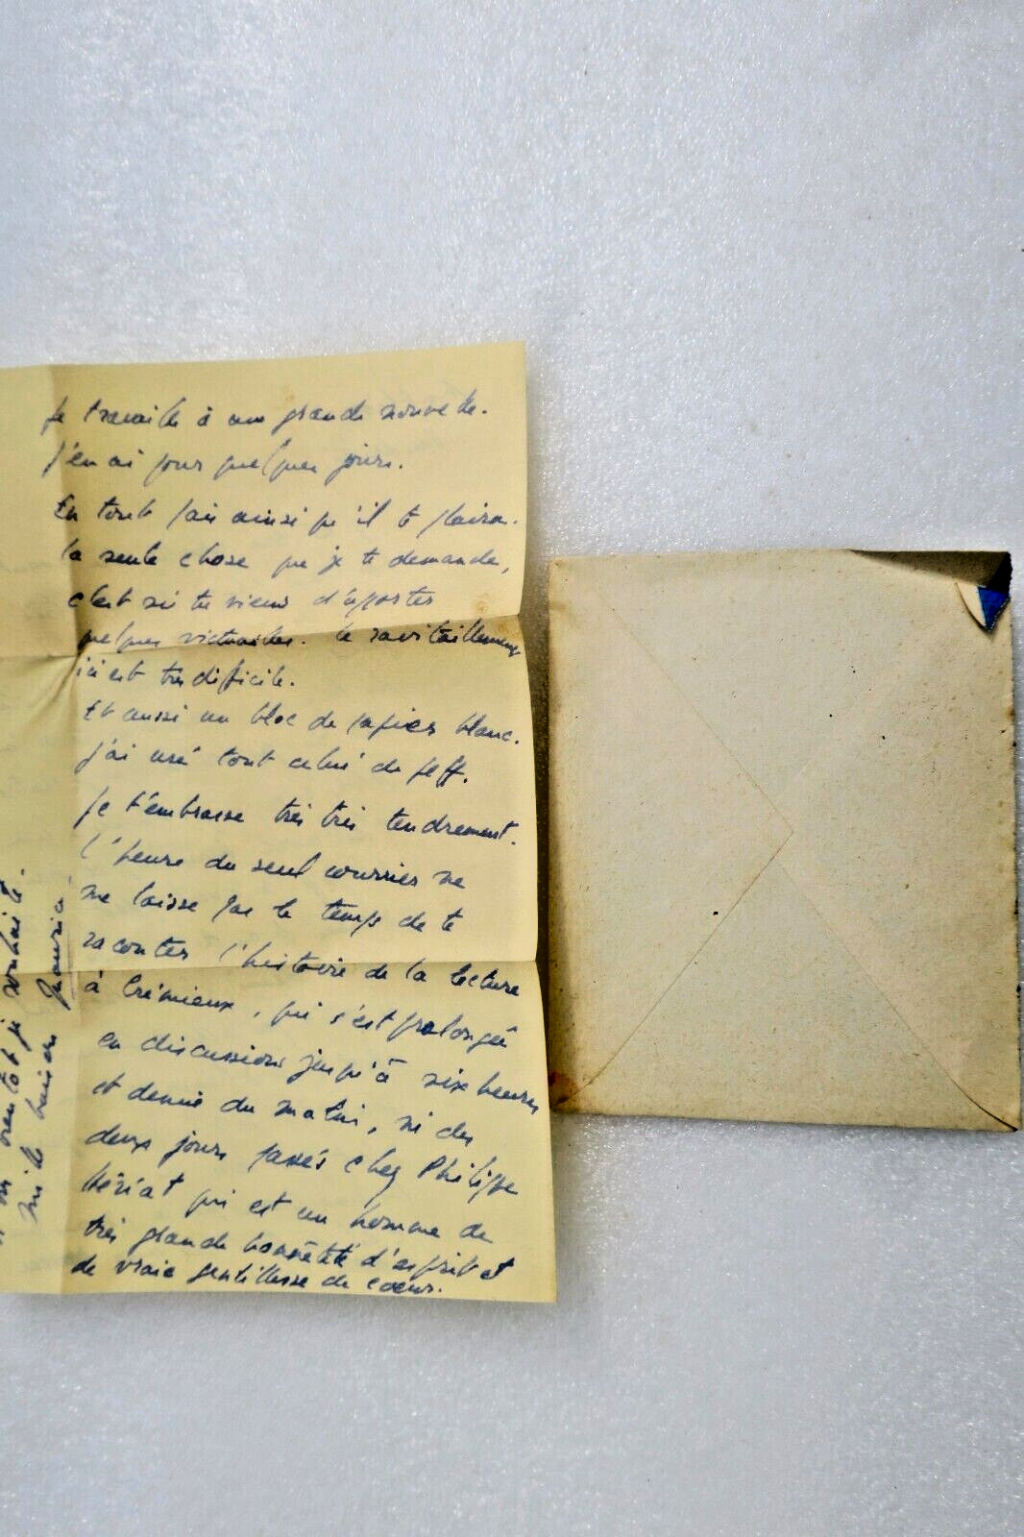 Je travaille à une grande nouvelle.
J'en ai pour quelques jours.
En tout fais ainsi qu'il te plaira.
la seule chose que je te demande,
c'est si tu viens d'apporter
quelques victuailles. le ravitaillement
ici est très difficile.
Et aussi un bloc de papier blanc.
J'ai usé tout celui de Jeff.
Je t'embrasse très très tendrement.
l'heure du seul courrier ne
me laisse pas le temps de te
raconter l'histoire de la lecture
à Crémieux, qui s'est prolongée
en discussions jusqu'à six heures
et demie du matin, ni des
deux jours passés chez Philippe
Hériat qui est un homme de
très grande honnêteté d'esprit et
de vraie gentillesse de coeur.
bientôt je souhaite.
Mille baisers Maurice